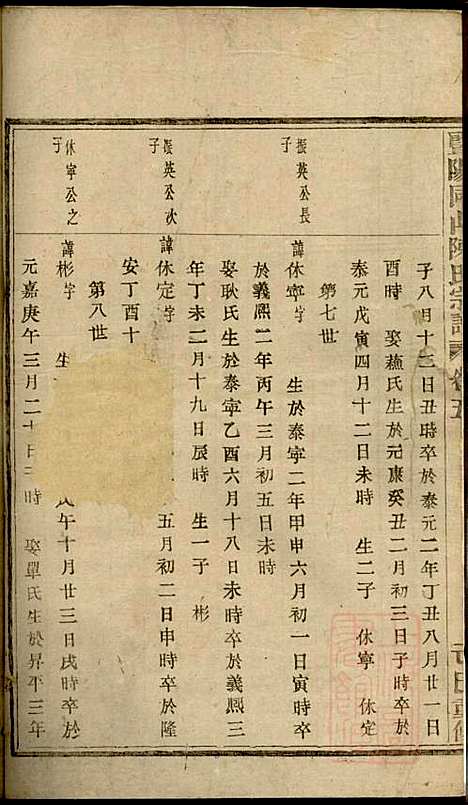 陳氏宗譜 卷五
子八月十三日丑時卒於泰元二年丁丑八月廿一日
酉時 娶蘓氏生於元康癸丑二月初三日子時卒於
泰元戊寅四月十二日未時 生二子 休寧 休定
第七世
振英公長子
諱休寧字 生於泰寧二年甲申六月初一日寅時卒
於義熙二年丙午三月初五日未時
娶耿氏生於泰寧乙酉六月十八日未時卒於義熙三
年丁未二月十九日辰時 生一子 彬
振英公次子
諱休定字 五月初二日申時卒於隆
安丁酉十
第八世
休寧公之子
諱彬字 生 午十月廿三日戌時卒於
元嘉庚午三月二十日 時 娶單氏生於昇平三年